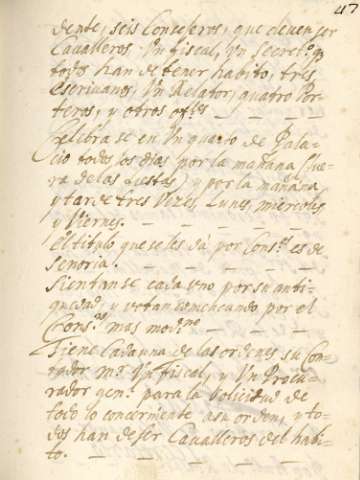 47
dente, seis Consejeros, que deven ser
Cavalleros. Un fiscal, Un Secret.º y
todos han de tener habito, tres
escrivanos, Un Relator, quatro Por-
teros, y otros
celebra se en Un quarto de Pala-
cio todos los dias por la mañana (fue-
ra de las fiestas) y por la mañana
y tarde tres Vezes, Lunes, miercoles,
y Viernes.
El titulo que se les dá por Cons.º es de
señoria.
Sientanse cada uno por su anti-
guedad, y votan comencando por el
Cons.º mas mod.no
Tiene cada una de las ordenes su Con-
tador m.or Un fiscal, y Un Procu-
rador gen.l para la solicitud de
todo lo concerniente a su orden, y to-
dos han de ser Cavalleros del habi-
to.